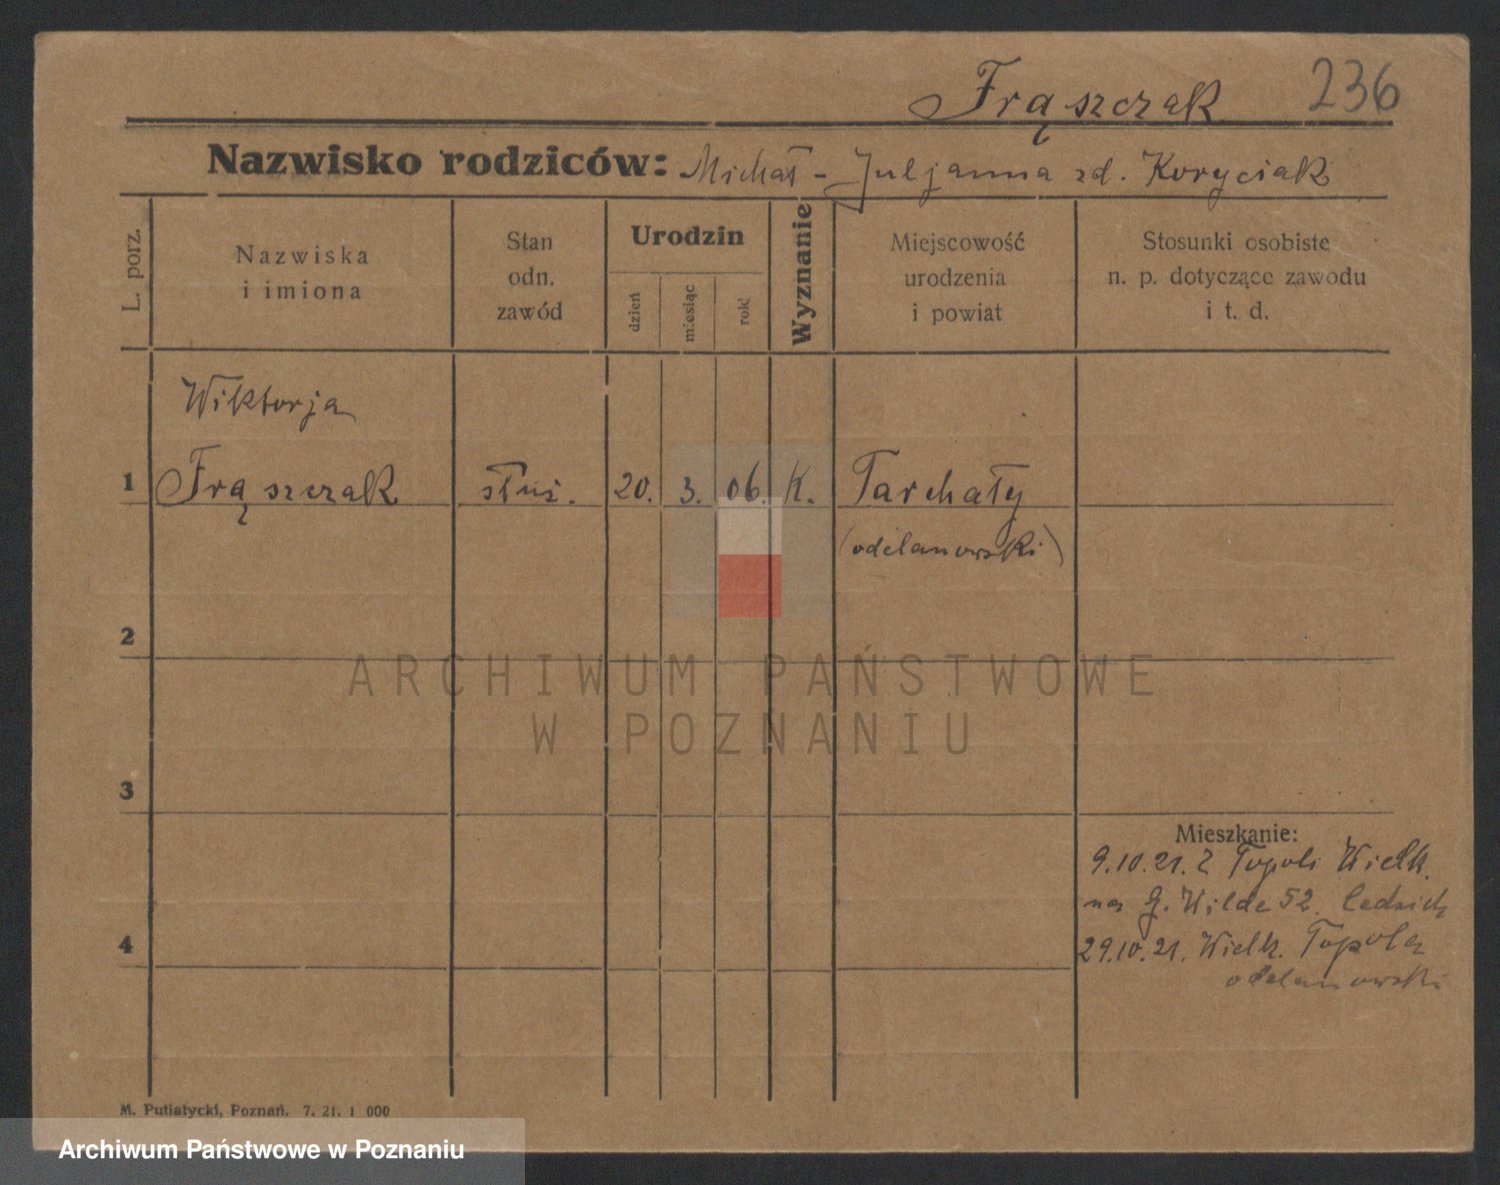 Frąszczak 236
Nazwisko rodziców: Michał - Juljanna zd. Koryciak
L. porz.
Nazwiska
i imiona
Stan
odn.
zawód
Urodzin
dzień
miesiąc
rok
Wyznanie
Miejscowość
urodzenia
i powiat
Stosunki osobiste
n. p. dotyczące zawodu
i t. d.
Wiktorja
1 Frąszczak służ. 20. 3. 06. K. Tarchały
(odelanowski)
2
ARCHIWUM PAŃSTWOWE
W POZNANIU
3
Mieszkanie:
9.10.21. Z Topoli Wielk.
na G. Wilde 52.
4
29.10.21. Wielk. Topola
odelanowski
M. Putiatycki, Poznań. 7. 21. 1 000
Archiwum Państwowe w Poznaniu